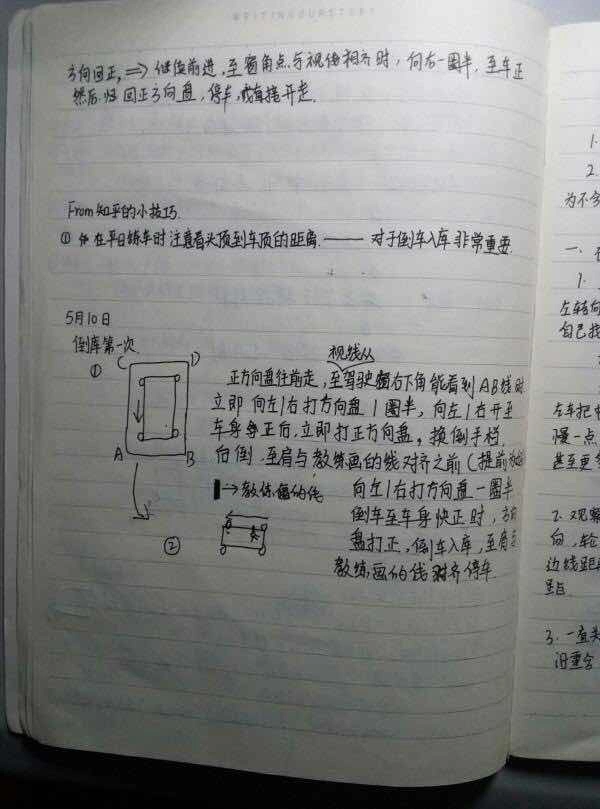 WRITINGOURSTORY
方向回正,⇒ 继续前进,至窗角点与视线相齐时,向右一圈半,至车正
然后 回正方向盘,停车,或直接开走.
From 知乎的小技巧.
① 在平日练车时注意看头顶到车顶的距离.—— 对于倒车入库非常重要.
5月10日
倒库第一次.
视线从
① C D
正方向盘往前走,至驾驶窗右下角能看到AB线时
立即 向左/右打方向盘1圈半,向左/右开至
车身 正后,立即打正方向盘,换倒手栏,
A B
向倒,至肩与教练画的线对齐之前(提前
→教练画的线
向左/右打方向盘一圈半
倒车至车身快正时,方向
②
盘打正,倒车入库,至肩与
教练画的线对齐停车.
1.
2.
为不
一、
1.
左转向
自己找
左车把
慢一点
甚至更
2. 观察
向,轮
边线距
3. 一直